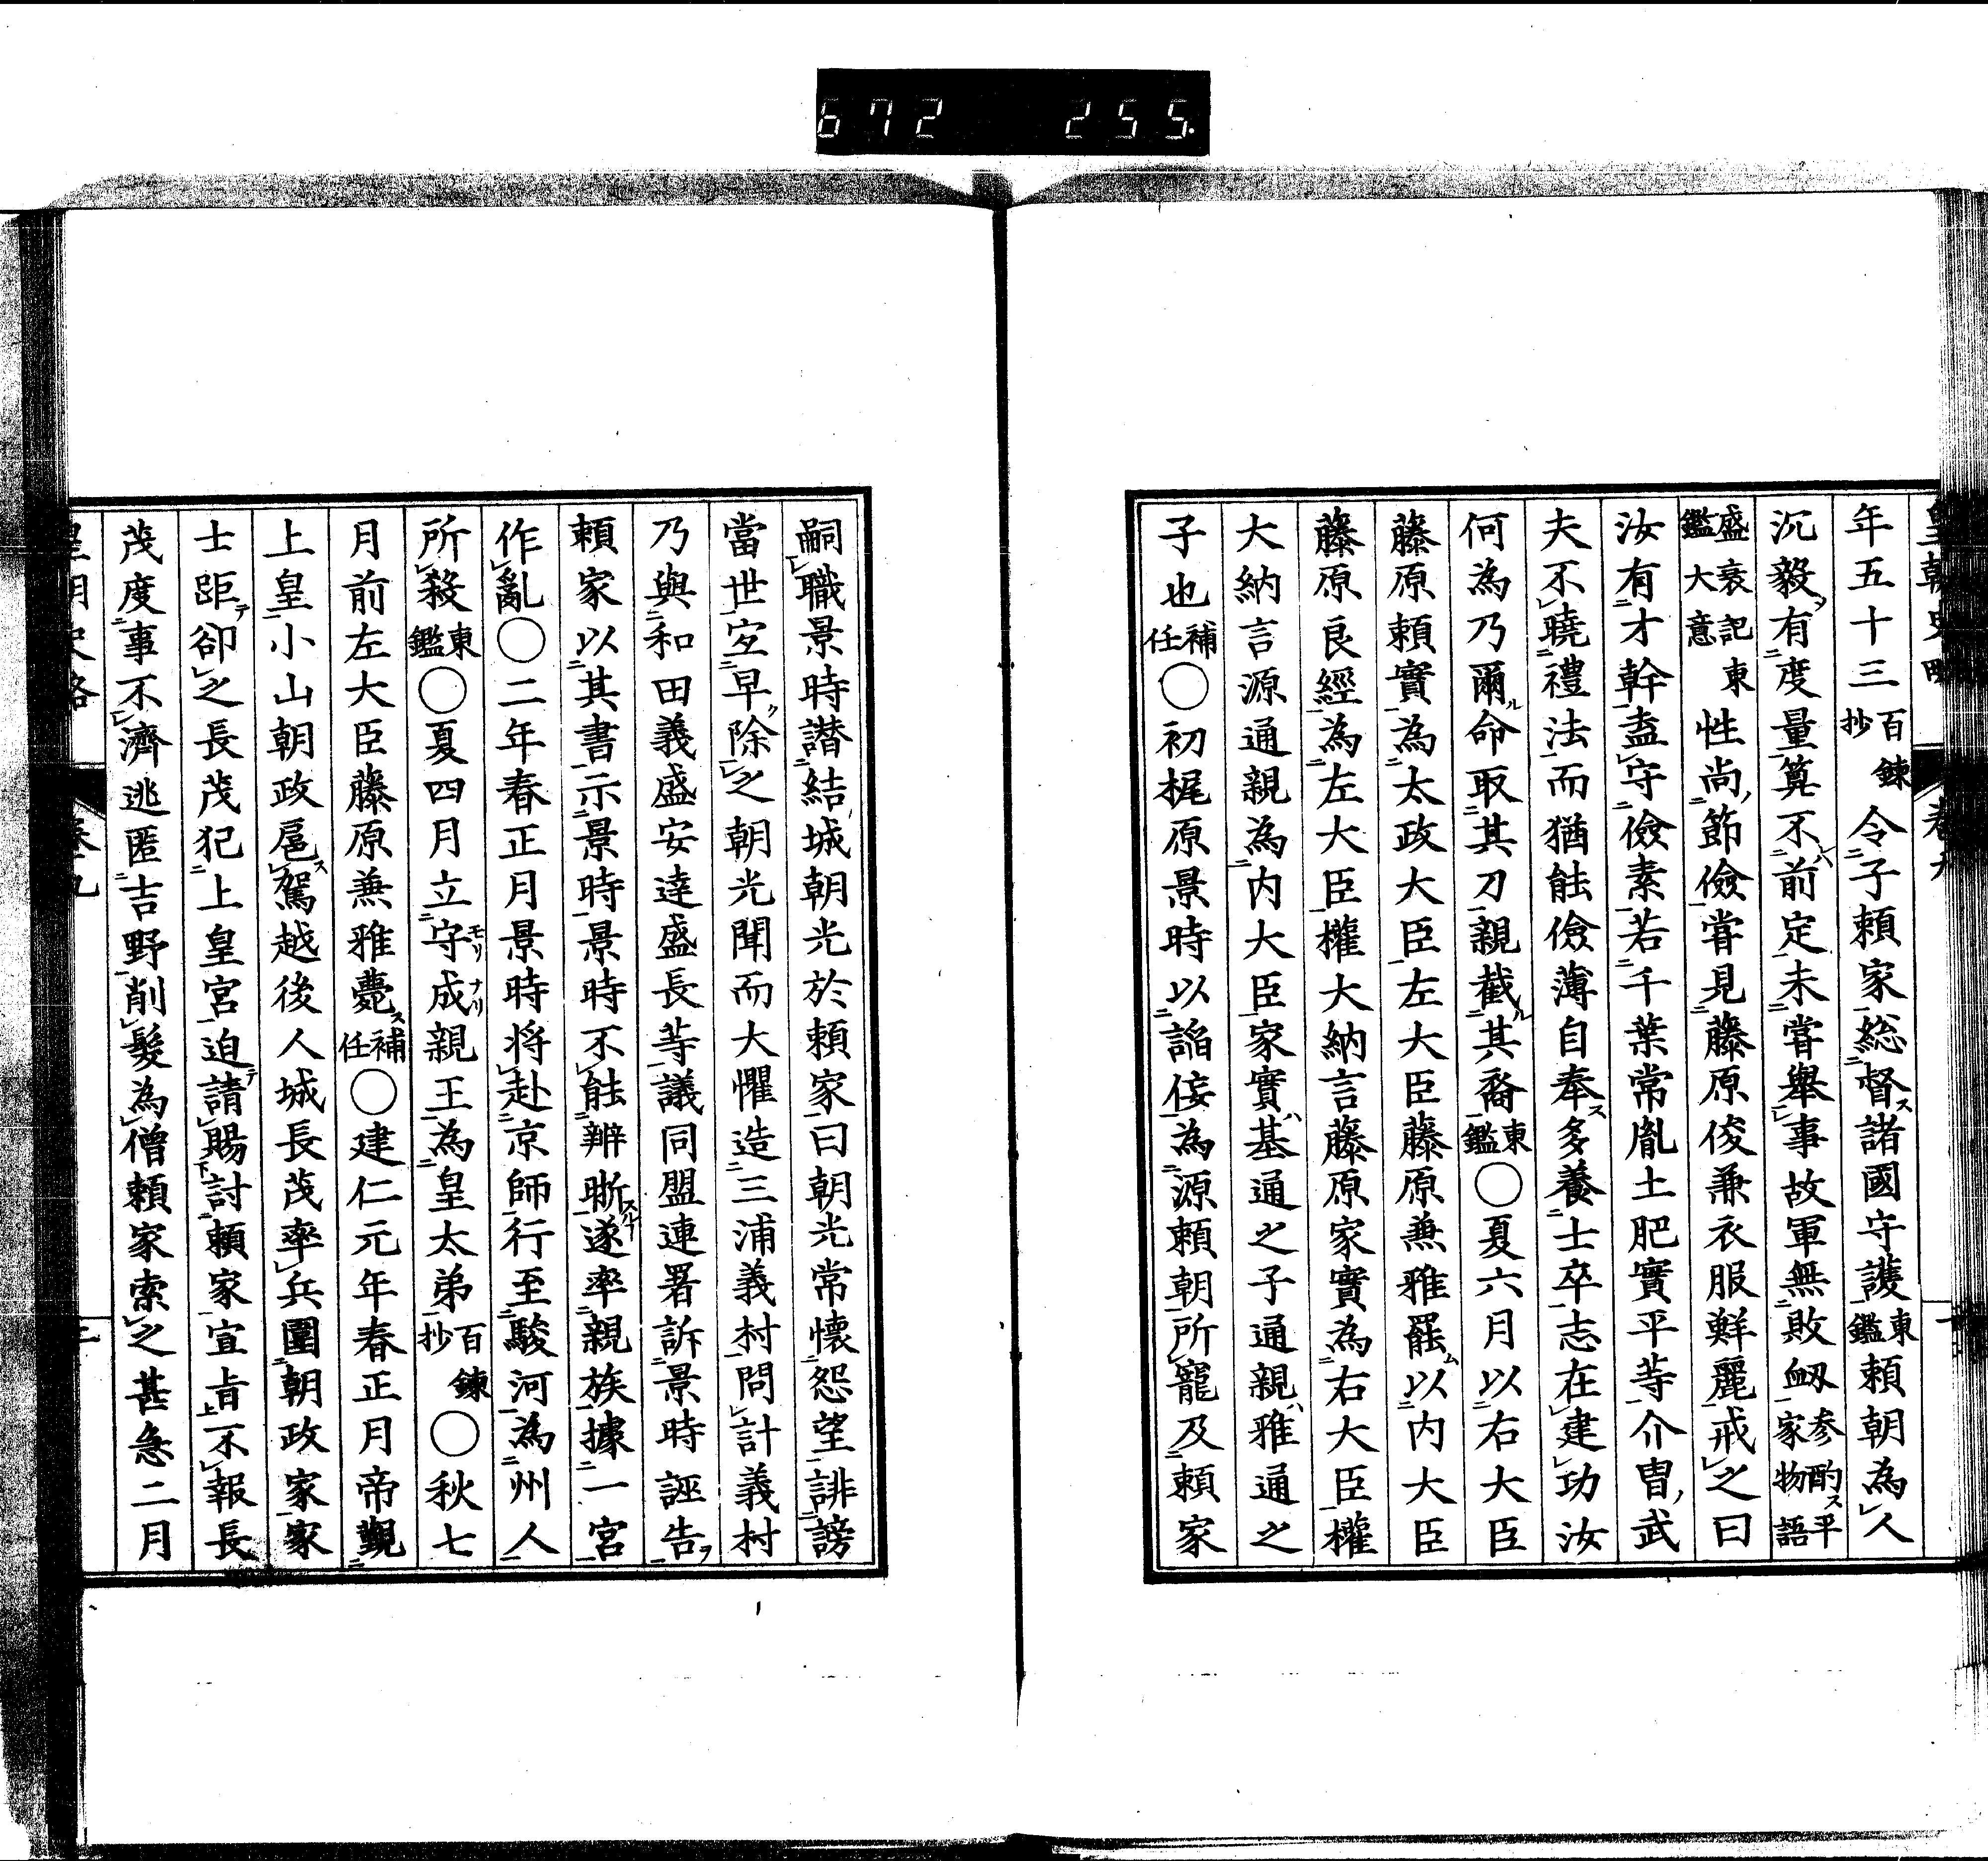 672 255.
年五十三百鍊抄令子賴家総督諸國守護東鑑賴朝為人
沉毅有度量筭不前定未嘗舉事故軍無敗衂参酌平家物語
盛衰記東鑑大意性尚節儉嘗見藤原俊兼衣服鮮麗戒之曰
汝有才幹盍守儉素若千葉常胤土肥實平等介冑武
夫不曉禮法而猶能儉薄自奉多養士卒志在建功汝
何為乃爾命取其刀親截其裔東鑑〇夏六月以右大臣
藤原賴實為太政大臣左大臣藤原兼雅罷以内大臣
藤原良經為左大臣權大納言藤原家實為右大臣權
大納言源通親為内大臣家實基通之子通親雅通之
子也補任〇初梶原景時以諂侫為源賴朝所寵及賴家
嗣職景時譖結城朝光於賴家曰朝光常懷怨望誹謗
當世宜早除之朝光聞而大懼造三浦義村問計義村
乃與和田義盛安達盛長等議同盟連署訴景時誣告
賴家以其書示景時景時不能辨晣遂率親族據一宮
作亂〇二年春正月景時将赴京師行至駿河為州人
所殺東鑑〇夏四月立守成親王為皇太弟百鍊抄〇秋七
月前左大臣藤原兼雅薨補任〇建仁元年春正月帝覲
上皇小山朝政扈駕越後人城長茂率兵圍朝政家家
士距卻之長茂犯上皇宮迫請賜討賴家宣旨不報長
茂度事不濟逃匿吉野削髮為僧賴家索之甚急二月